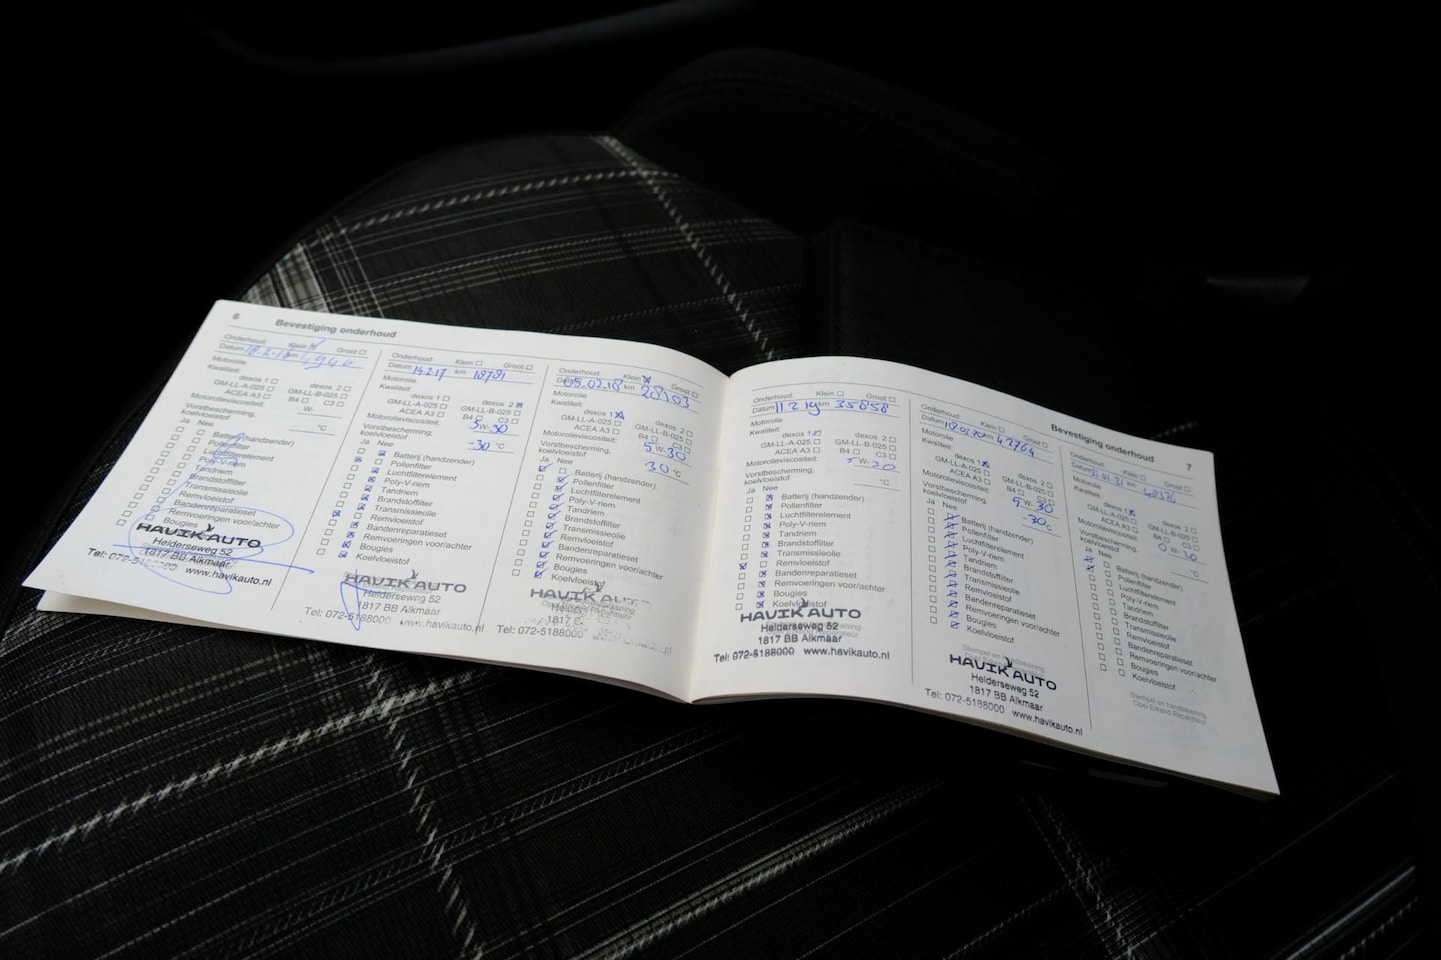 6 Bevestiging onderhoud
Onderhoud: Klein Groot
Datum km 4940
Motorolie
Kwaliteit:
dexos 1 dexos 2
GM-LL-A-025 GM-LL-B-025
ACEA A3 B4 C3
W-
Vorstbescherming,
koelvloeistof °C
Ja Nee
Batterij (handzender)
Pollenfilter
Luchtfilterelement
Poly-V-riem
Tandriem
Brandstoffilter
Transmissieolie
Remvloeistof
Bandenreparatieset
Remvoeringen voor/achter
Bougies
HAVIK AUTO
Helderseweg 52
1817 BB Alkmaar
Tel: 072-5 www.havikauto.nl
Onderhoud: Klein Groot
Datum 14-2-17 km 18781
Motorolie
Kwaliteit:
dexos 1 dexos 2
GM-LL-A-025 GM-LL-B-025
ACEA A3 B4 C3
Motorolieviscositeit: 5 W- 30
Vorstbescherming,
koelvloeistof -30 °C
Ja Nee
Batterij (handzender)
Pollenfilter
Luchtfilterelement
Poly-V-riem
Tandriem
Brandstoffilter
Transmissieolie
Remvloeistof
Bandenreparatieset
Remvoeringen voor/achter
Bougies
Koelvloeistof
HAVIK AUTO
Helderseweg 52
1817 BB Alkmaar
Tel: 072-5188000 www.havikauto.nl
Onderhoud: Klein Groot
Datum 05.02.18 km 28103
Motorolie
Kwaliteit:
dexos 1 dexos 2
GM-LL-A-025 GM-LL-B-025
ACEA A3 B4 C3
Motorolieviscositeit: 5 W- 30
Vorstbescherming,
koelvloeistof 30 °C
Ja Nee
Batterij (handzender)
Pollenfilter
Luchtfilterelement
Poly-V-riem
Tandriem
Brandstoffilter
Transmissieolie
Remvloeistof
Bandenreparatieset
Remvoeringen voor/achter
Bougies
Koelvloeistof
HAVIK
1817
Tel: 072-5188000
Onderhoud: Klein Groot
Datum 11.2 19 km 35858
Motorolie
Kwaliteit:
dexos 1 dexos 2
GM-LL-A-025 GM-LL-B-025
ACEA A3 B4 C3
Motorolieviscositeit: W-
Vorstbescherming,
koelvloeistof °C
Ja Nee
Batterij (handzender)
Pollenfilter
Luchtfilterelement
Poly-V-riem
Tandriem
Brandstoffilter
Transmissieolie
Remvloeistof
Bandenreparatieset
Remvoeringen voor/achter
Bougies
Koelvloeistof
HAVIK AUTO
Helderseweg 52
1817 BB Alkmaar
Tel: 072-5188000 www.havikauto.nl
Bevestiging onderhoud 7
Onderhoud: Klein Groot
Datum km 42764
Motorolie
Kwaliteit:
dexos 1 dexos 2
GM-LL-A-025 GM-LL-B-025
ACEA A3 B4 C3
Motorolieviscositeit: 5 W- 30
Vorstbescherming,
koelvloeistof -30 °C
Ja Nee
Batterij (handzender)
Pollenfilter
Luchtfilterelement
Poly-V-riem
Tandriem
Brandstoffilter
Transmissieolie
Remvloeistof
Bandenreparatieset
Remvoeringen voor/achter
Bougies
Koelvloeistof
HAVIK AUTO
Helderseweg 52
1817 BB Alkmaar
Tel: 072-5188000 www.havikauto.nl
Onderhoud: Klein Groot
Datum km
Motorolie
Kwaliteit:
dexos 1 dexos 2
GM-LL-A-025 GM-LL-B-025
ACEA A3 B4 C3
Motorolieviscositeit: 0 W-
Vorstbescherming,
koelvloeistof °C
Ja Nee
Batterij (handzender)
Pollenfilter
Luchtfilterelement
Poly-V-riem
Tandriem
Brandstoffilter
Transmissieolie
Remvloeistof
Bandenreparatieset
Remvoeringen voor/achter
Bougies
Koelvloeistof
Stempel en handtekening
Opel Erkend Reparateur